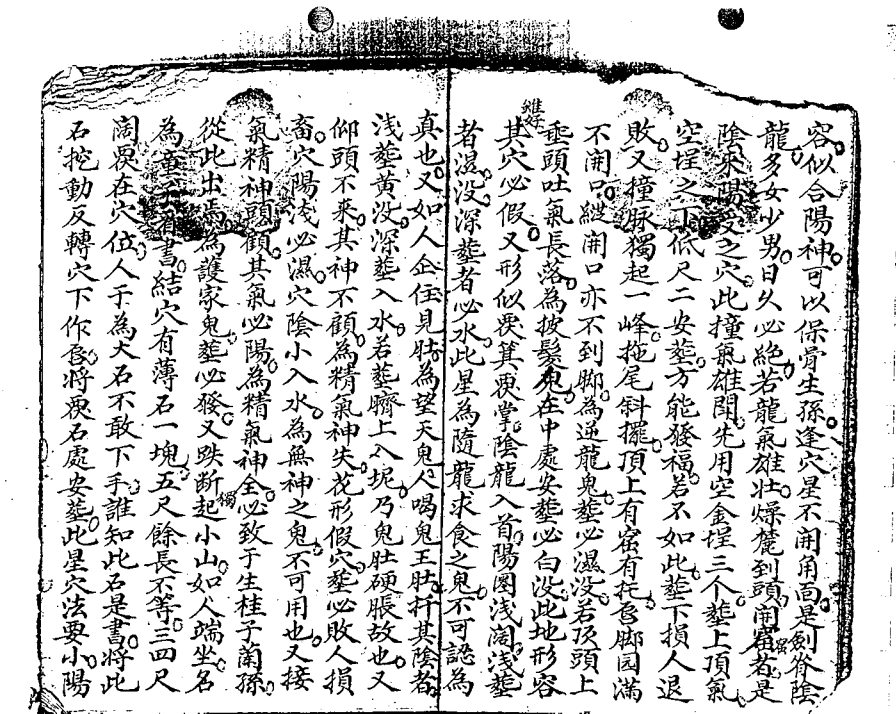 容似合陽神可以保骨生孫逢穴星不開角面是劍脊陰
龍多女少男日久必絕若龍氣雄壯燥麓到頭開窩若是
陰來陽受之穴此撞氣雄閗先用空金埕三个塟上頂氣
空埕之下低尺二安塟方能發福若不如此塟下損人退
敗又撞脉獨起一峰拖尾斜擺頂上有窩有托唇脚园滿
不開口縱開口亦不到脚為逆龍鬼塟必濕没若頂頭上
垂頭吐氣長落為披髮鬼在中處安塟必白没此地形容
其穴必假又形似覆箕覆掌陰龍入首陽圏浅濶浅塟
者濕没深塟者必水此星為隨龍求食之鬼不可認為
真也又如人企住見肚為望天鬼人喝鬼王肚扦其陰者
浅塟黄没深塟入水若塟臍上入坭乃鬼肚硬脹故也又
仰頭不來其神不顧為精氣神失花形假穴塟必敗人損
畜穴陽浅必濕穴陰小入水為無神之鬼不可用也又接
氣精神頭顧其氣必陽為精氣神全必致于生桂子蘭孫
從此出焉為護家鬼塟必發又跌断獨起小山如人端坐名
為童子看書結穴有薄石一塊五尺餘長不等三四尺
濶畏在穴位人于為大石不敢下手誰知此石是書將此
石挖動反轉穴下作唇將畏石處安塟此星穴法要小陽